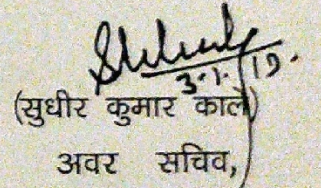 3.1.19.
(सुधीर कुमार काले)
अवर सचिव,